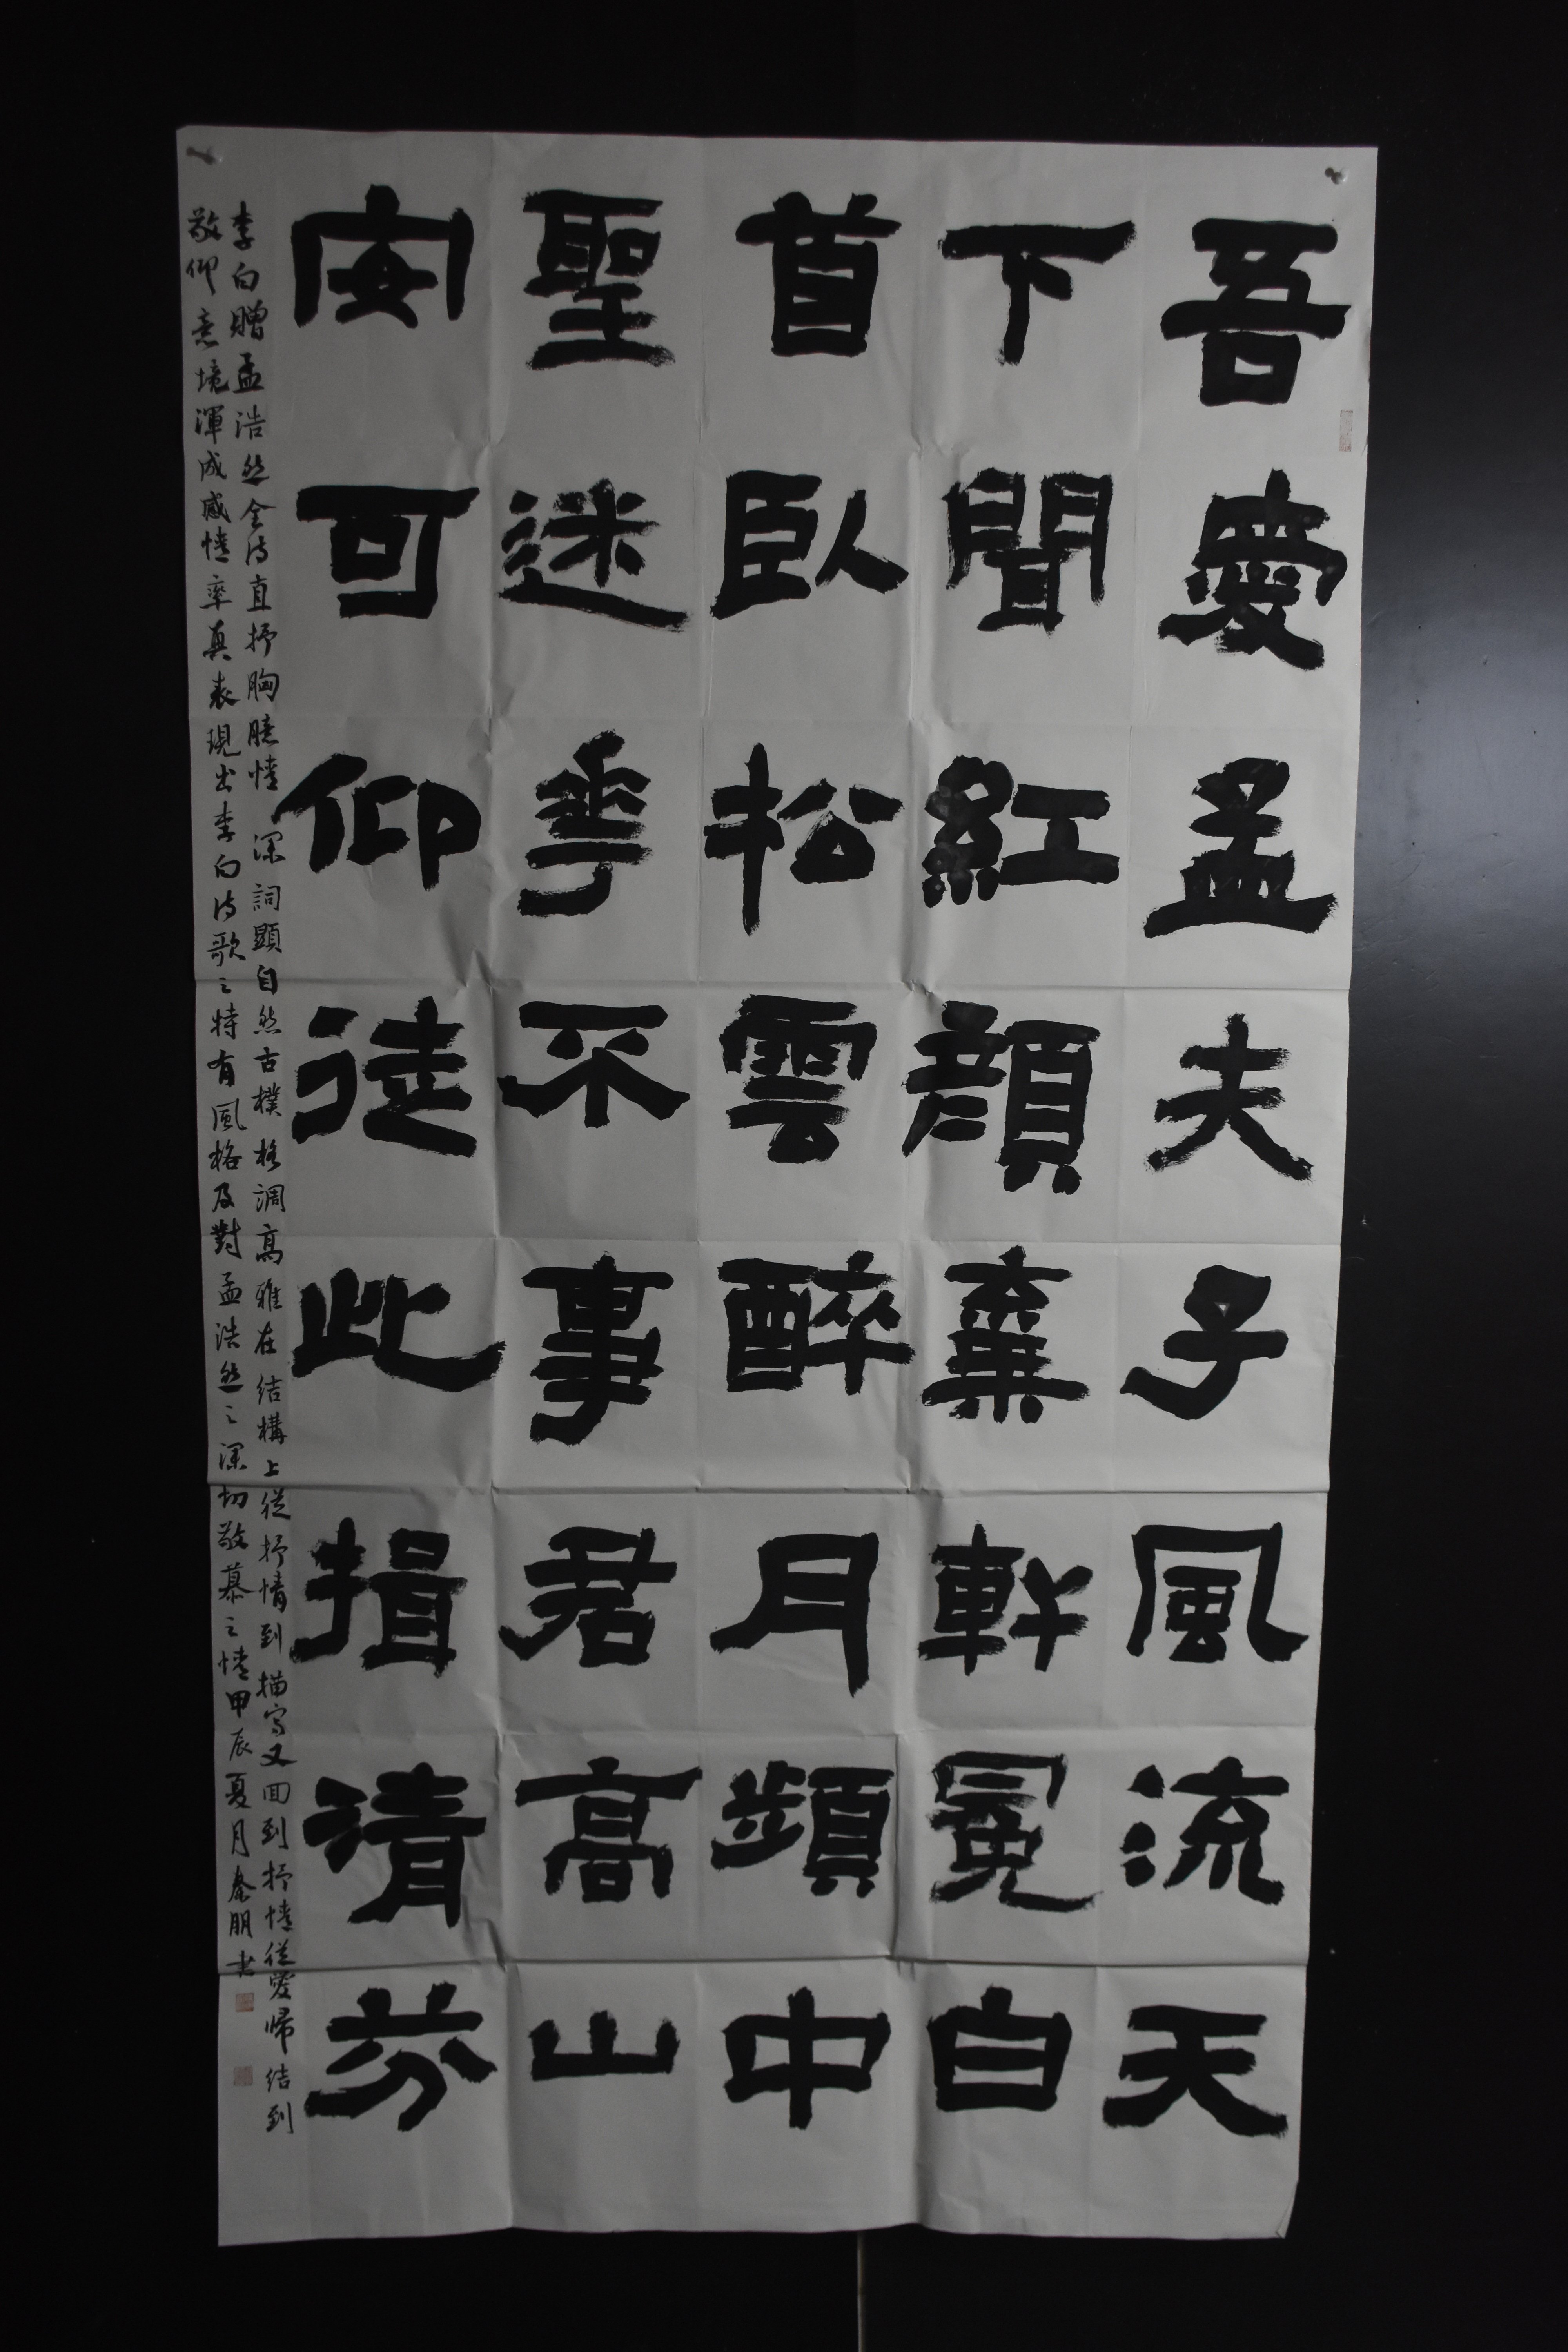 吾愛孟夫子風流天
下聞紅顔棄軒冕白
首臥松雲醉月頻中
聖迷花不事君高山
安可仰徒此揖清芬
李白贈孟浩然全诗直抒胸臆情深詞顯自然古樸格調高雅在結構上從抒情到描寫又回到抒情從愛歸结到
敬仰意境渾成感情率真表現出李白诗歌之特有風格及對孟浩然之深切敬慕之情甲辰夏月秦朋書